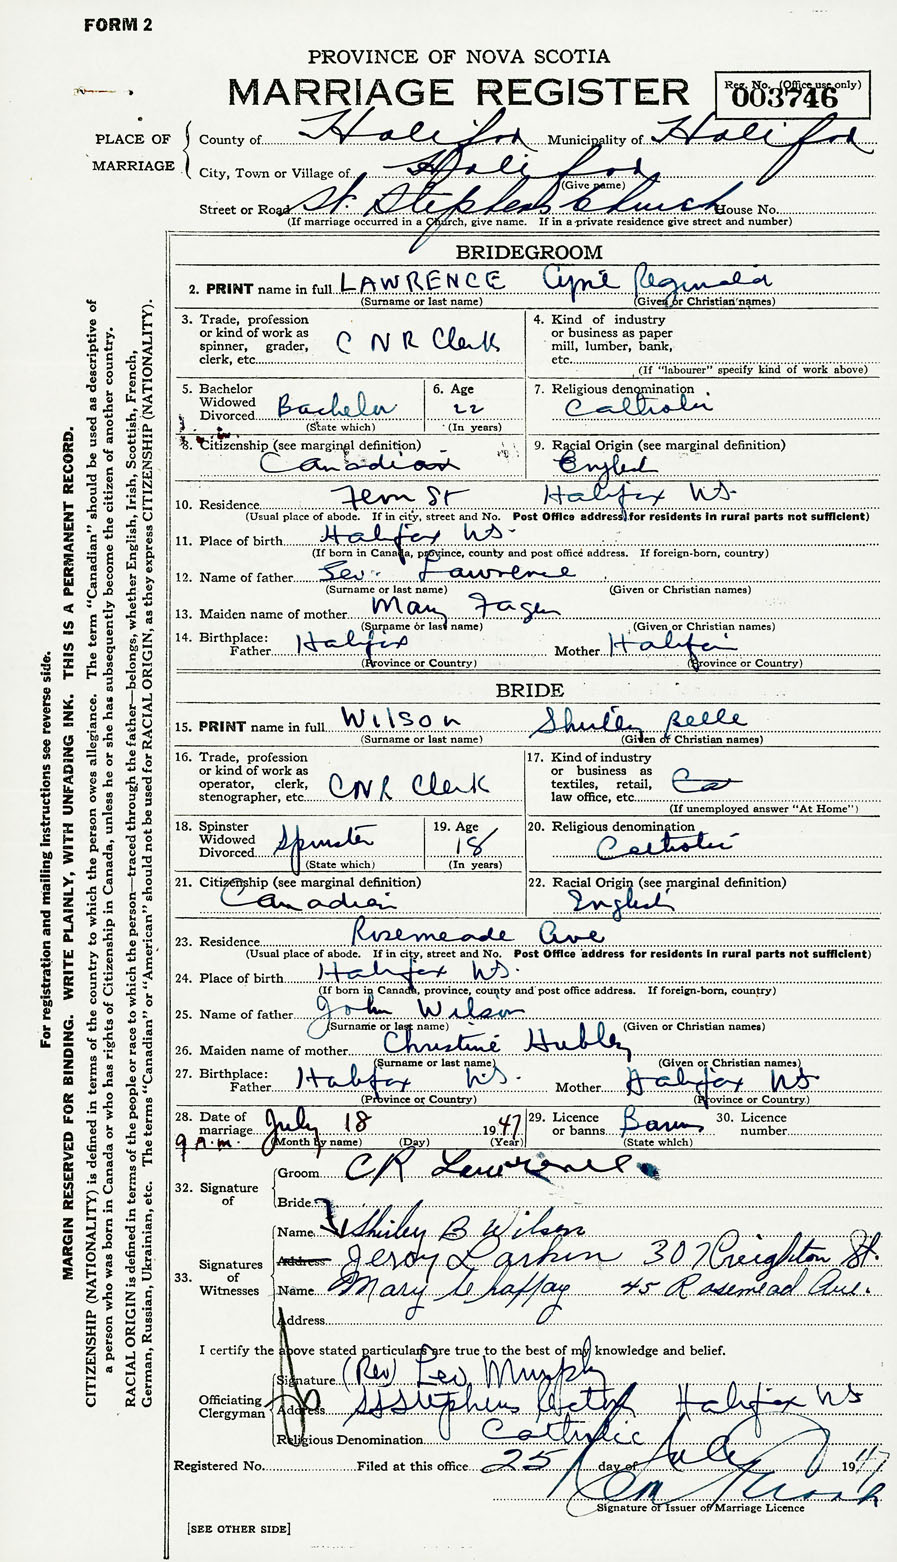 FORM 2
PROVINCE OF NOVA SCOTIA
MARRIAGE REGISTER
Reg. No. (Office use only)
003746
PLACE OF MARRIAGE
County of Halifax Municipality of Halifax
City, Town or Village of Halifax
(Give name)
Street or Road St. Stephens Church House No.
(If marriage occurred in a Church, give name. If in a private residence give street and number)
BRIDEGROOM
2. PRINT name in full LAWRENCE Cyril Reginald
(Surname or last name) (Given or Christian names)
3. Trade, profession or kind of work as spinner, grader, clerk, etc. C N R Clerk
4. Kind of industry or business as paper mill, lumber, bank, etc.
(If "labourer" specify kind of work above)
5. Bachelor Widowed Divorced Bachelor
(State which)
6. Age 22
(In years)
7. Religious denomination Catholic
8. Citizenship (see marginal definition) Canadian
9. Racial Origin (see marginal definition) English
10. Residence Fern St Halifax NS.
(Usual place of abode. If in city, street and No. Post Office address for residents in rural parts not sufficient)
11. Place of birth Halifax NS.
(If born in Canada, province, county and post office address. If foreign-born, country)
12. Name of father Lawrence
(Surname or last name) (Given or Christian names)
13. Maiden name of mother Mary Fagen
(Surname or last name) (Given or Christian names)
14. Birthplace: Father Halifax Mother Halifax
(Province or Country) (Province or Country)
BRIDE
15. PRINT name in full Wilson Shirley Belle
(Surname or last name) (Given or Christian names)
16. Trade, profession or kind of work as operator, clerk, stenographer, etc. CNR Clerk
17. Kind of industry or business as textiles, retail, law office, etc.
(If unemployed answer "At Home")
18. Spinster Widowed Divorced Spinster
(State which)
19. Age 18
(In years)
20. Religious denomination Catholic
21. Citizenship (see marginal definition) Canadian
22. Racial Origin (see marginal definition) English
23. Residence Rosemeade Ave
(Usual place of abode. If in city, street and No. Post Office address for residents in rural parts not sufficient)
24. Place of birth Halifax NS.
(If born in Canada, province, county and post office address. If foreign-born, country)
25. Name of father John Wilson
(Surname or last name) (Given or Christian names)
26. Maiden name of mother Christine Hubley
(Surname or last name) (Given or Christian names)
27. Birthplace: Father Halifax NS. Mother Halifax NS
(Province or Country) (Province or Country)
28. Date of marriage July 18 1947
9 a.m. (Month by name) (Day) (Year)
29. Licence or banns Banns
(State which)
30. Licence number
32. Signature of
Groom C R Lawrence
Bride
33. Signatures of Witnesses
Name Shirley B Wilson
Address Jerry Larkin 307 Creighton St.
Name Mary 45 Rosemead Ave.
Address
I certify the above stated particulars are true to the best of my knowledge and belief.
Officiating Clergyman
Signature (Rev) Murphy
Address St Stephens Halifax NS
Religious Denomination Catholic
Registered No. Filed at this office 25 day of July 1947
Signature of Issuer of Marriage Licence
[SEE OTHER SIDE]
For registration and mailing instructions see reverse side.
MARGIN RESERVED FOR BINDING. WRITE PLAINLY, WITH UNFADING INK. THIS IS A PERMANENT RECORD.
CITIZENSHIP (NATIONALITY) is defined in terms of the country to which the person owes allegiance. The term "Canadian" should be used as descriptive of
a person who was born in Canada or who has rights of Citizenship in Canada, unless he or she has subsequently become the citizen of another country.
RACIAL ORIGIN is defined in terms of the people or race to which the person—traced through the father—belongs, whether English, Irish, Scottish, French,
German, Russian, Ukrainian, etc. The terms "Canadian" or "American" should not be used for RACIAL ORIGIN, as they express CITIZENSHIP (NATIONALITY).